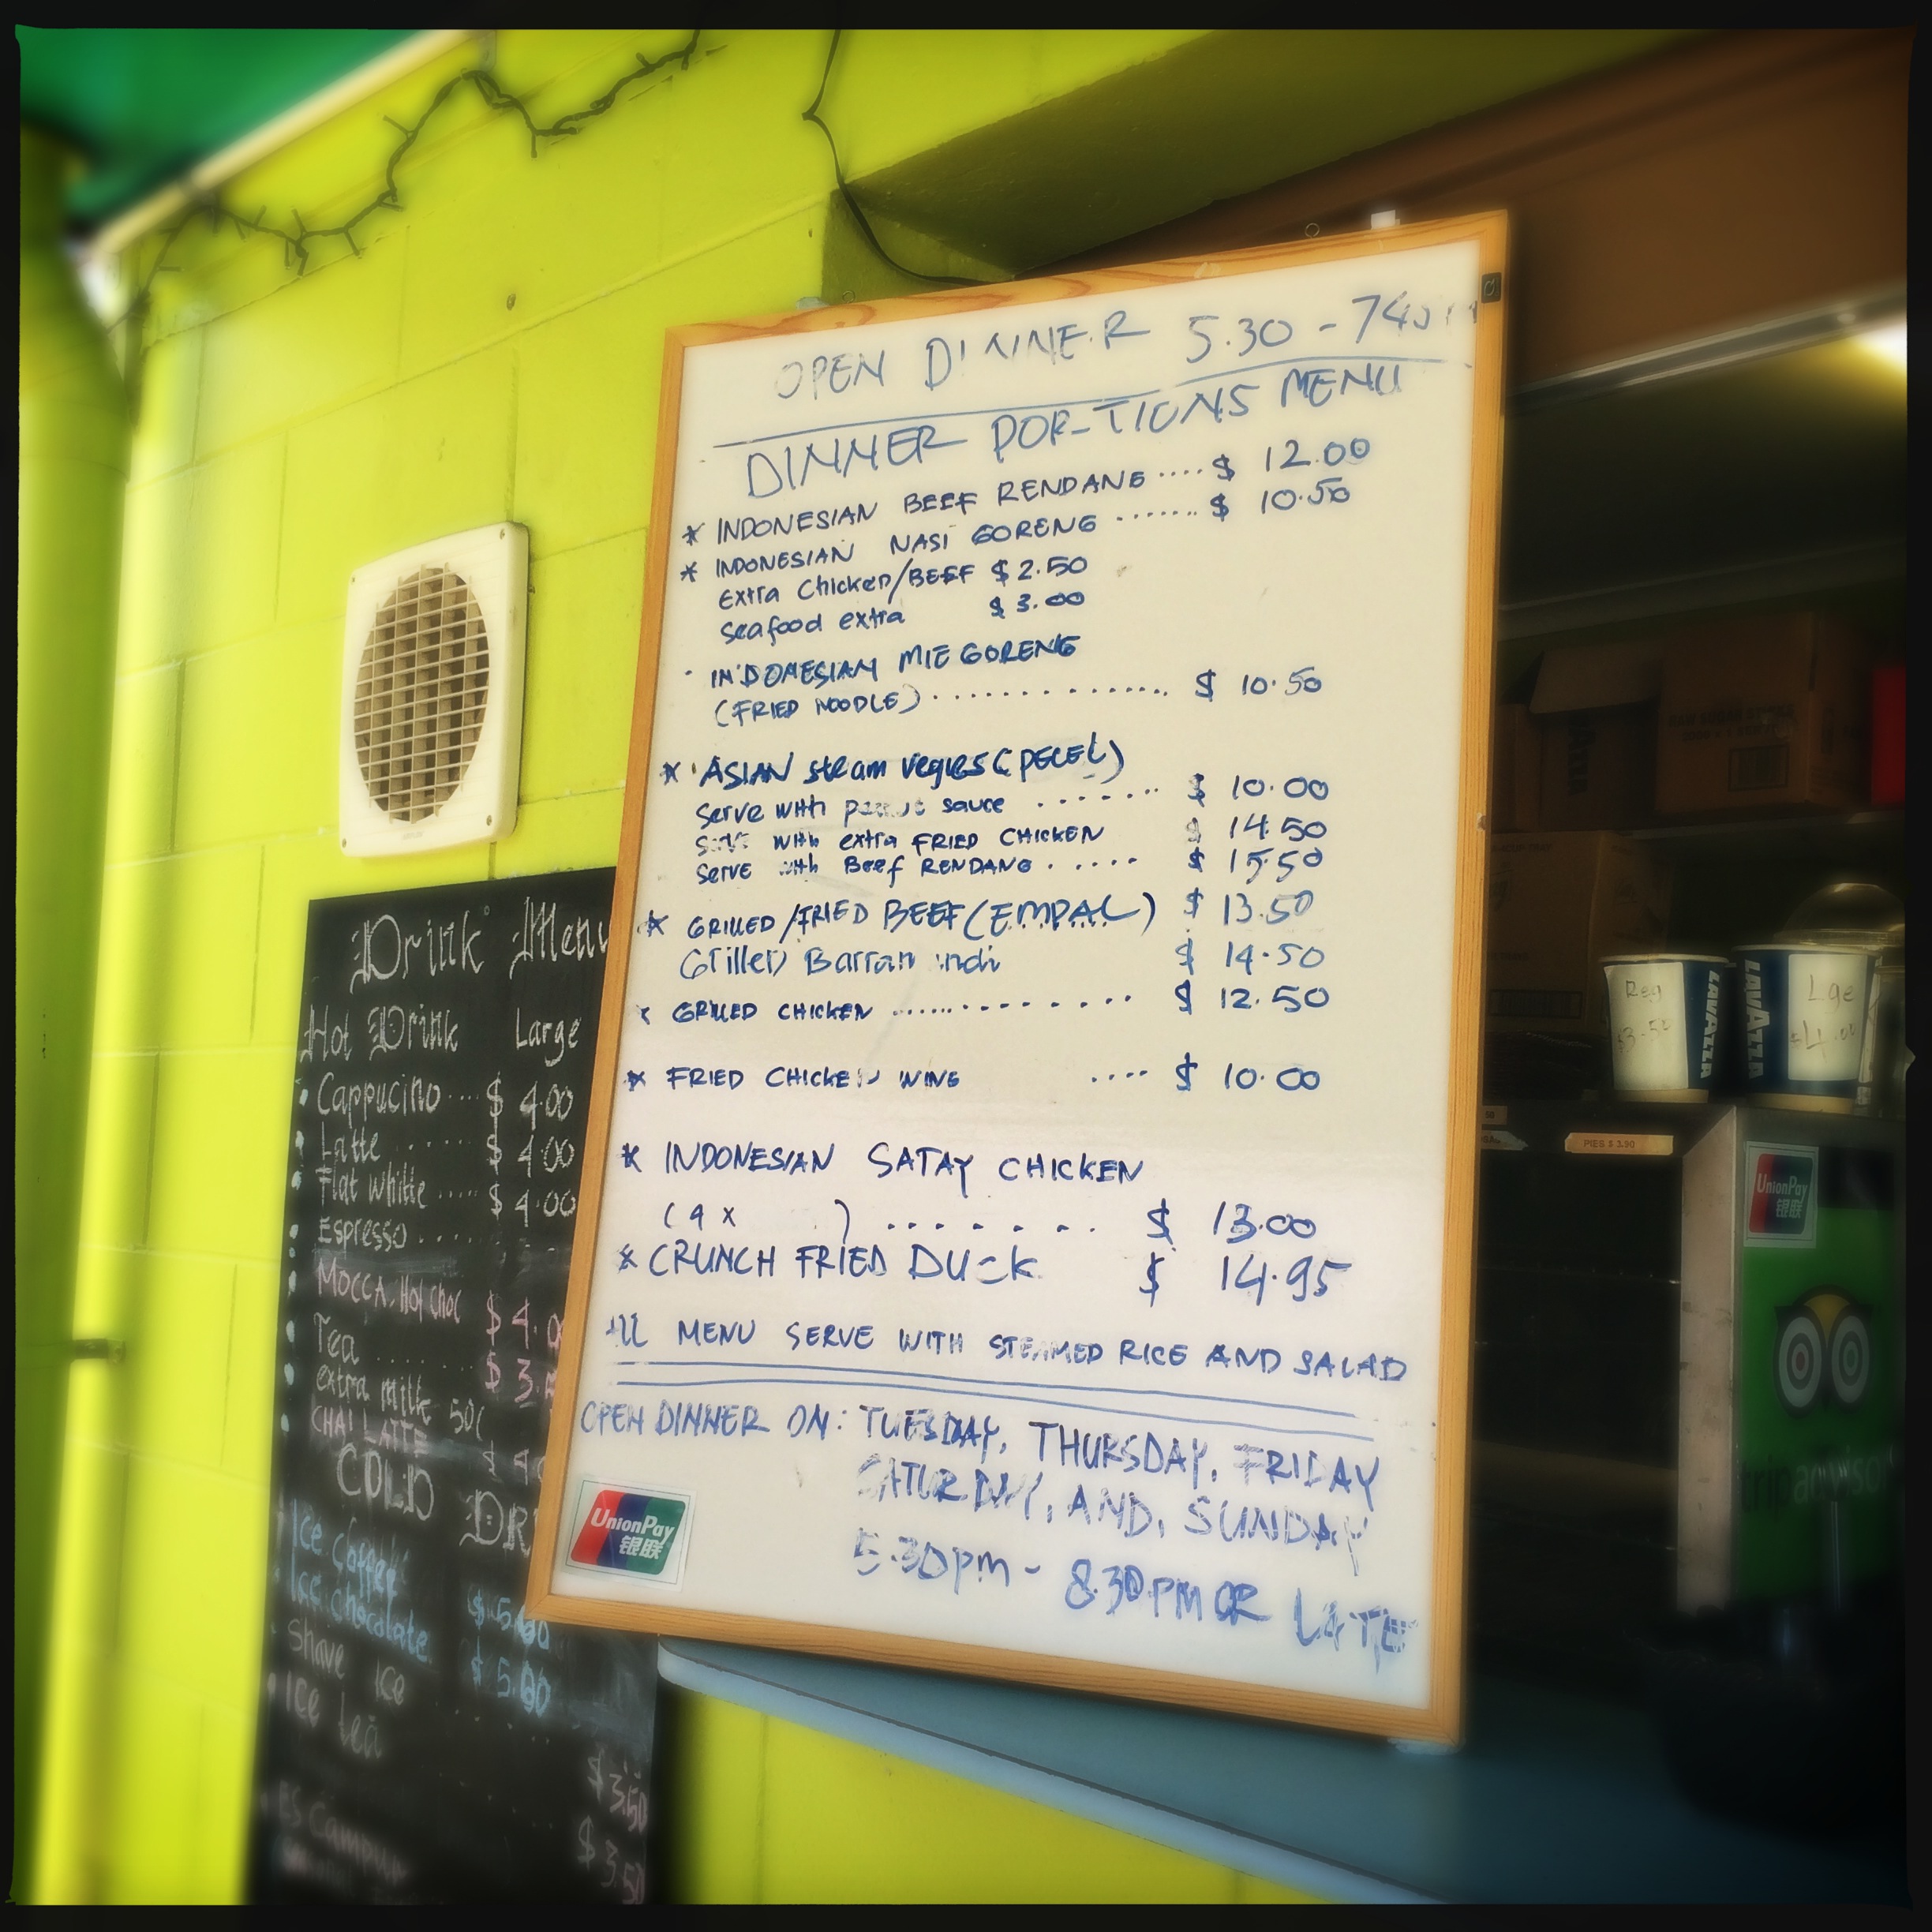 OPEN DINNER 5.30 -
DINNER POR-TIONS MENU
* INDONESIAN BEEF RENDANG .... $ 12.00
* INDONESIAN NASI GORENG ....... $ 10.50
Extra Chicken/BEEF $ 2.50
Seafood extra $ 3.00
· INDONESIAN MIE GORENG
(FRIED NOODLE) .............. $ 10.50
* ASIAN steam vegies (PECEL)
Serve with peanut sauce ....... $ 10.00
Serve with extra FRIED CHICKEN $ 14.50
Serve with Beef RENDANG ..... $ 15.50
* GRILLED/FRIED BEEF (EMPAL) $ 13.50
Grilled Barramundi $ 14.50
* GRILLED CHICKEN .............. $ 12.50
* FRIED CHICKEN WING .... $ 10.00
* INDONESIAN SATAY CHICKEN
(4 x ) ....... $ 13.00
* CRUNCH FRIED DUCK $ 14.95
All MENU SERVE WITH STEAMED RICE AND SALAD
OPEN DINNER ON: TUESDAY, THURSDAY, FRIDAY
SATURDAY, AND, SUNDAY
5.30pm - 8.30PM OR LATE
UnionPay
银联
Drink Menu
Hot Drink Large
Cappucino ... $ 4.00
Latte ...... $ 4.00
Flat white ..... $ 4.00
Espresso .....
MOCCA. Hot choc $ 4.0
Tea ....... $ 3.
extra milk 50c
CHAI LATTE $ 4
COLD DR
Ice Coffee $ 5.00
Ice Chocolate $ 5.00
Shave Ice
Ice tea $ 3.50
ES Campur $ 3.50
Reg
$3.50
LAVAZZA
LAVAZZA
Lge
$4.00
PIES $ 3.90
UnionPay
银联
tripadvisor